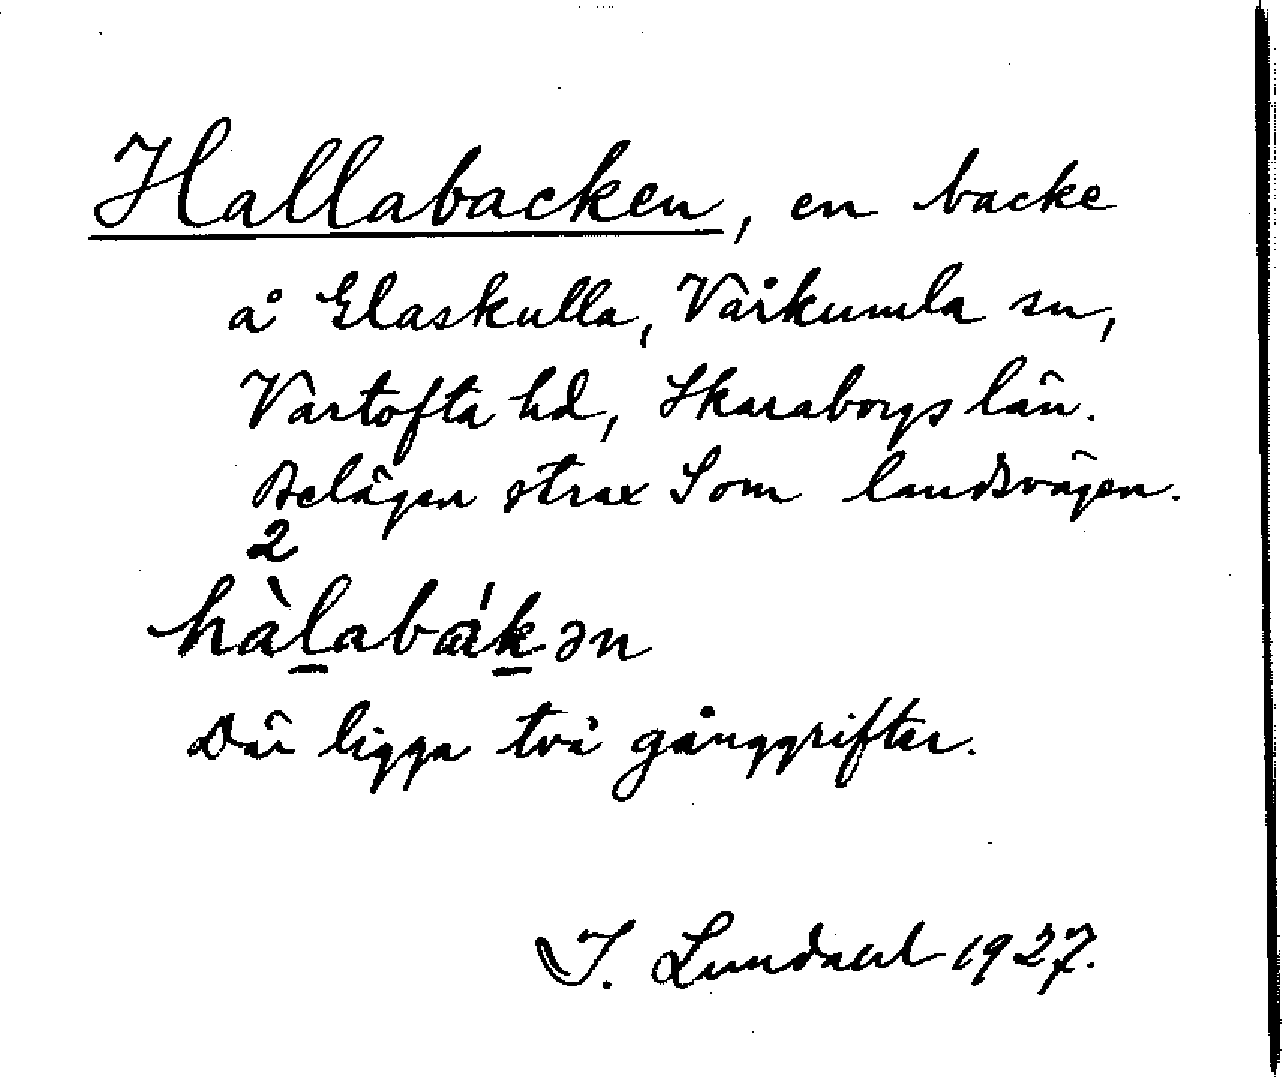 Hallabacken, en backe
å Glaskulla, Vårkumla sn,
Vartofta hd, Skaraborgs län.
Belägen strax S om landsvägen.
2
hàlabákən
Där ligga två gånggrifter.
I. Lundahl 1927.